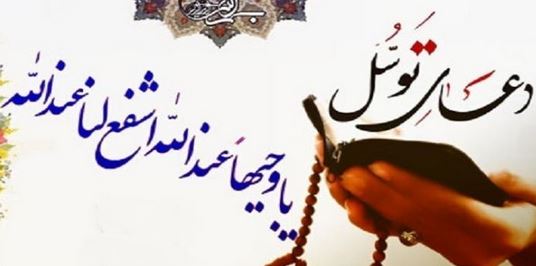 دعای توسّل
یا وجیهاً عند الله اشفع لنا عند الله